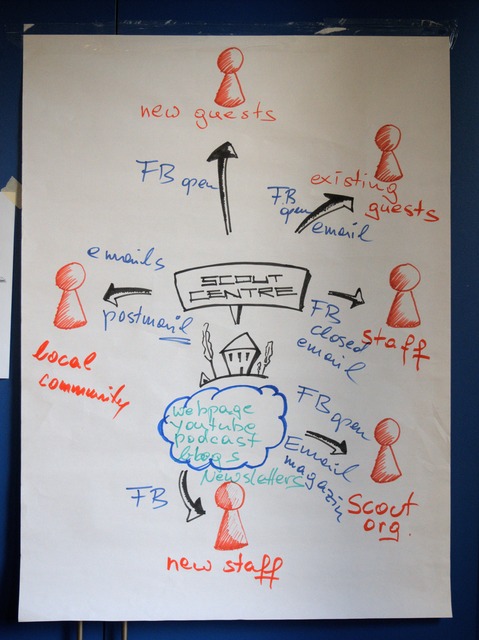 new guests
FB open
existing
guests
FB
open
email
emails
postmail
local
community
SCOUT
CENTRE
FB
closed
email
staff
webpage
youtube
podcast
blogs
Newsletters
FB open
Email
magazin
Scout
org.
FB
new staff